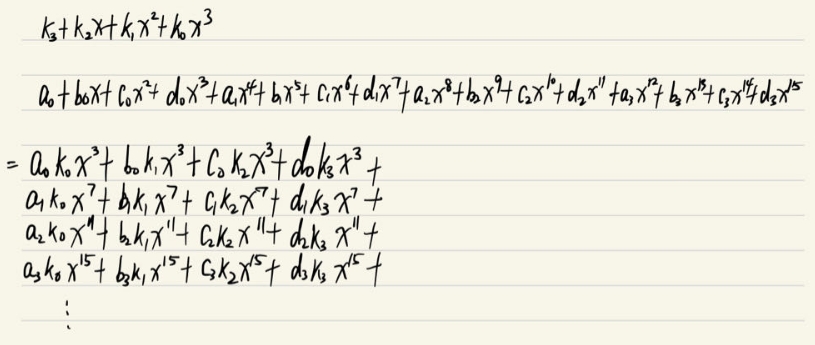 k₃+k₂x+k₁x²+k₀x³
a₀+b₀x+c₀x²+d₀x³+a₁x⁴+b₁x⁵+c₁x⁶+d₁x⁷+a₂x⁸+b₂x⁹+c₂x¹⁰+d₂x¹¹+a₃x¹²+b₃x¹³+c₃x¹⁴+d₃x¹⁵
= a₀k₀x³+b₀k₁x³+c₀k₂x³+d₀k₃x³+
a₁k₀x⁷+b₁k₁x⁷+c₁k₂x⁷+d₁k₃x⁷+
a₂k₀x¹¹+b₂k₁x¹¹+c₂k₂x¹¹+d₂k₃x¹¹+
a₃k₀x¹⁵+b₃k₁x¹⁵+c₃k₂x¹⁵+d₃k₃x¹⁵+
⋮